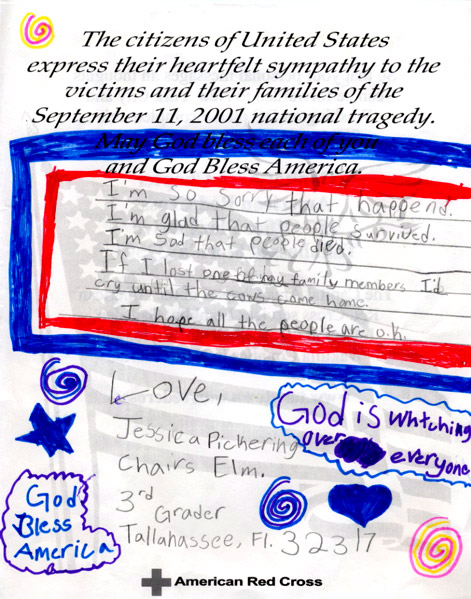 The citizens of United States
express their heartfelt sympathy to the
victims and their families of the
September 11, 2001 national tragedy.
May God bless each of you
and God Bless America.
I'm so sorry that happend.
I'm glad that people survived.
I'm sad that people died.
If I lost one of my family members I'd
cry until the cows come home.
I hope all the people are o.k.
Love,
Jessica Pickering
Chairs Elm.
3rd Grader
Tallahassee, Fl. 32317
God is whtching
over everyone
God
Bless
America
American Red Cross